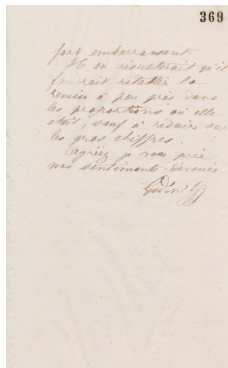 369
fort embarrassant.
Il en résulterait qu'il
faudrait rétablir la
remise à peu près dans
les proportions où elle
était, sauf à réduire sur
les gros chiffres.
Agréez je vous prie
mes sentiments dévoués
Godin